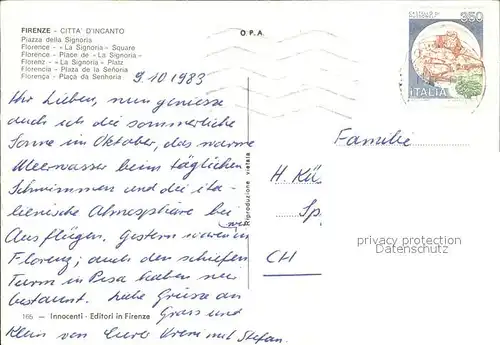 FIRENZE - CITTA' D'INCANTO
Piazza della Signoria
Florence - «La Signoria» Square
Florence - Place de «La Signoria»
Florenz - «La Signoria» Platz
Florencia - Plaza de la Señoria
Florença - Plaça da Senhoria
O.P.A.
350
ITALIA
9.10.1983
Ihr Lieben, nun geniesse
auch ich die sommerliche
Sonne im Oktober, das warme
Meerwasser beim täglichen
Schwimmen und die ita-
lienische Atmosphäre bei
Ausflügen. Gestern waren wir in
Florenz; auch den schiefen
Turm in Pisa haben wir
bestaunt. Liebe Grüsse an
Gross und
Klein von Eurer mit Stefan.
166 - Innocenti - Editori in Firenze
Riproduzione vietata
Familie
H. Kü
Sp.
CH
privacy protection
Datenschutz